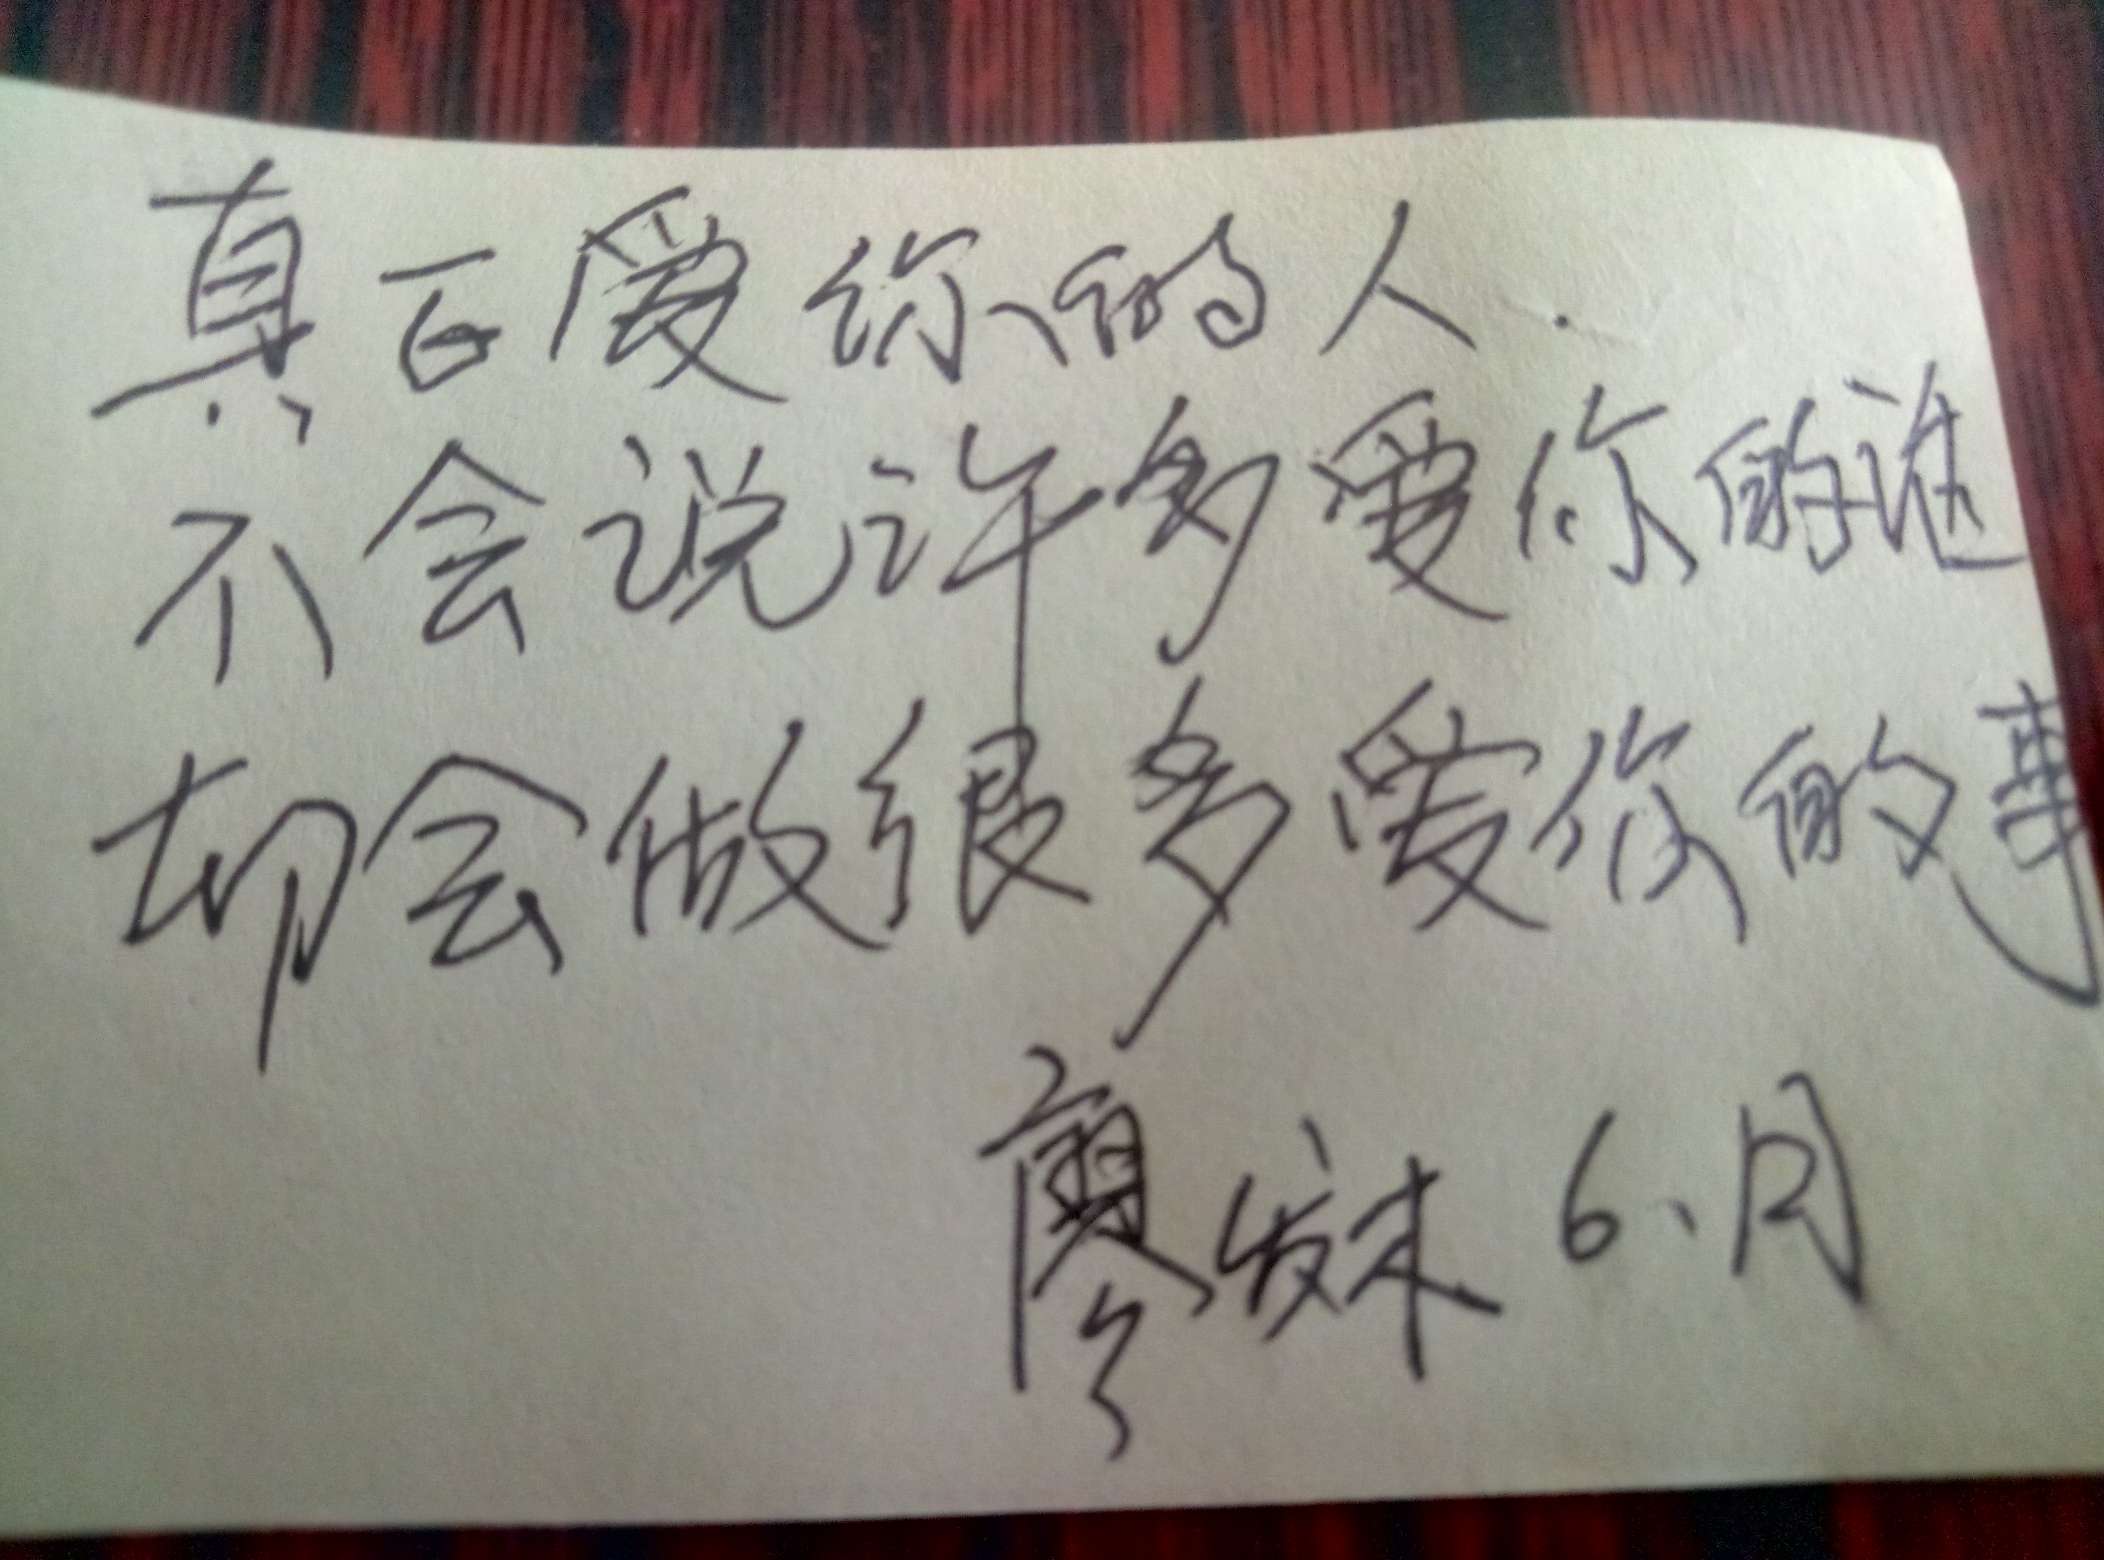 真正爱你的人.
不会说许多爱你的话
却会做很多爱你的事
廖 6、月